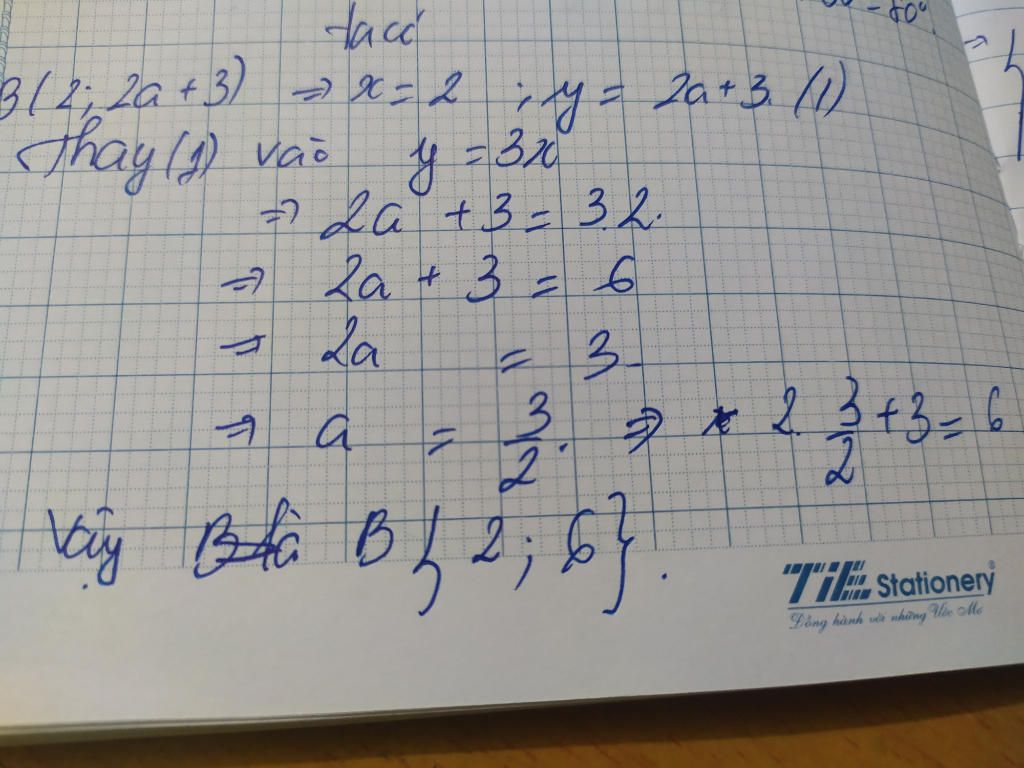 ta có
B(2; 2a + 3) ⇒ x = 2 ; y = 2a + 3. (1)
Thay (1) vào y = 3x
⇒ 2a + 3 = 3.2.
⇒ 2a + 3 = 6
⇒ 2a = 3
⇒ a = 3/2. ⇒ 2. 3/2 + 3 = 6
Vậy B là B { 2 ; 6 }.
TiE Stationery®
Đồng hành với những Ước Mơ